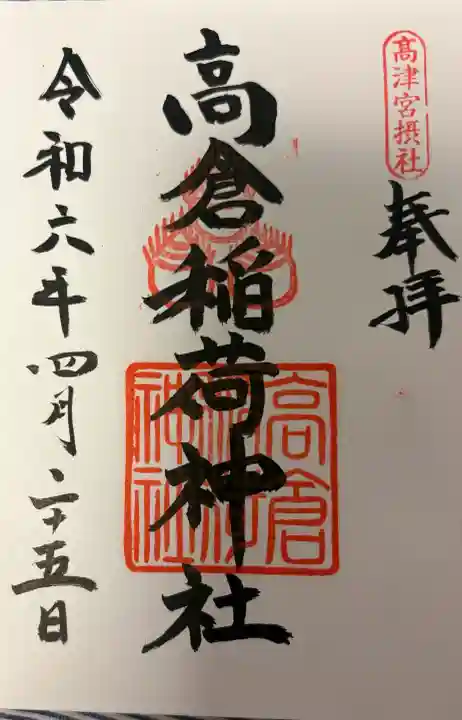 高津宮摂社
奉拝
高倉稲荷神社
高倉
神社
令和六年四月二十五日